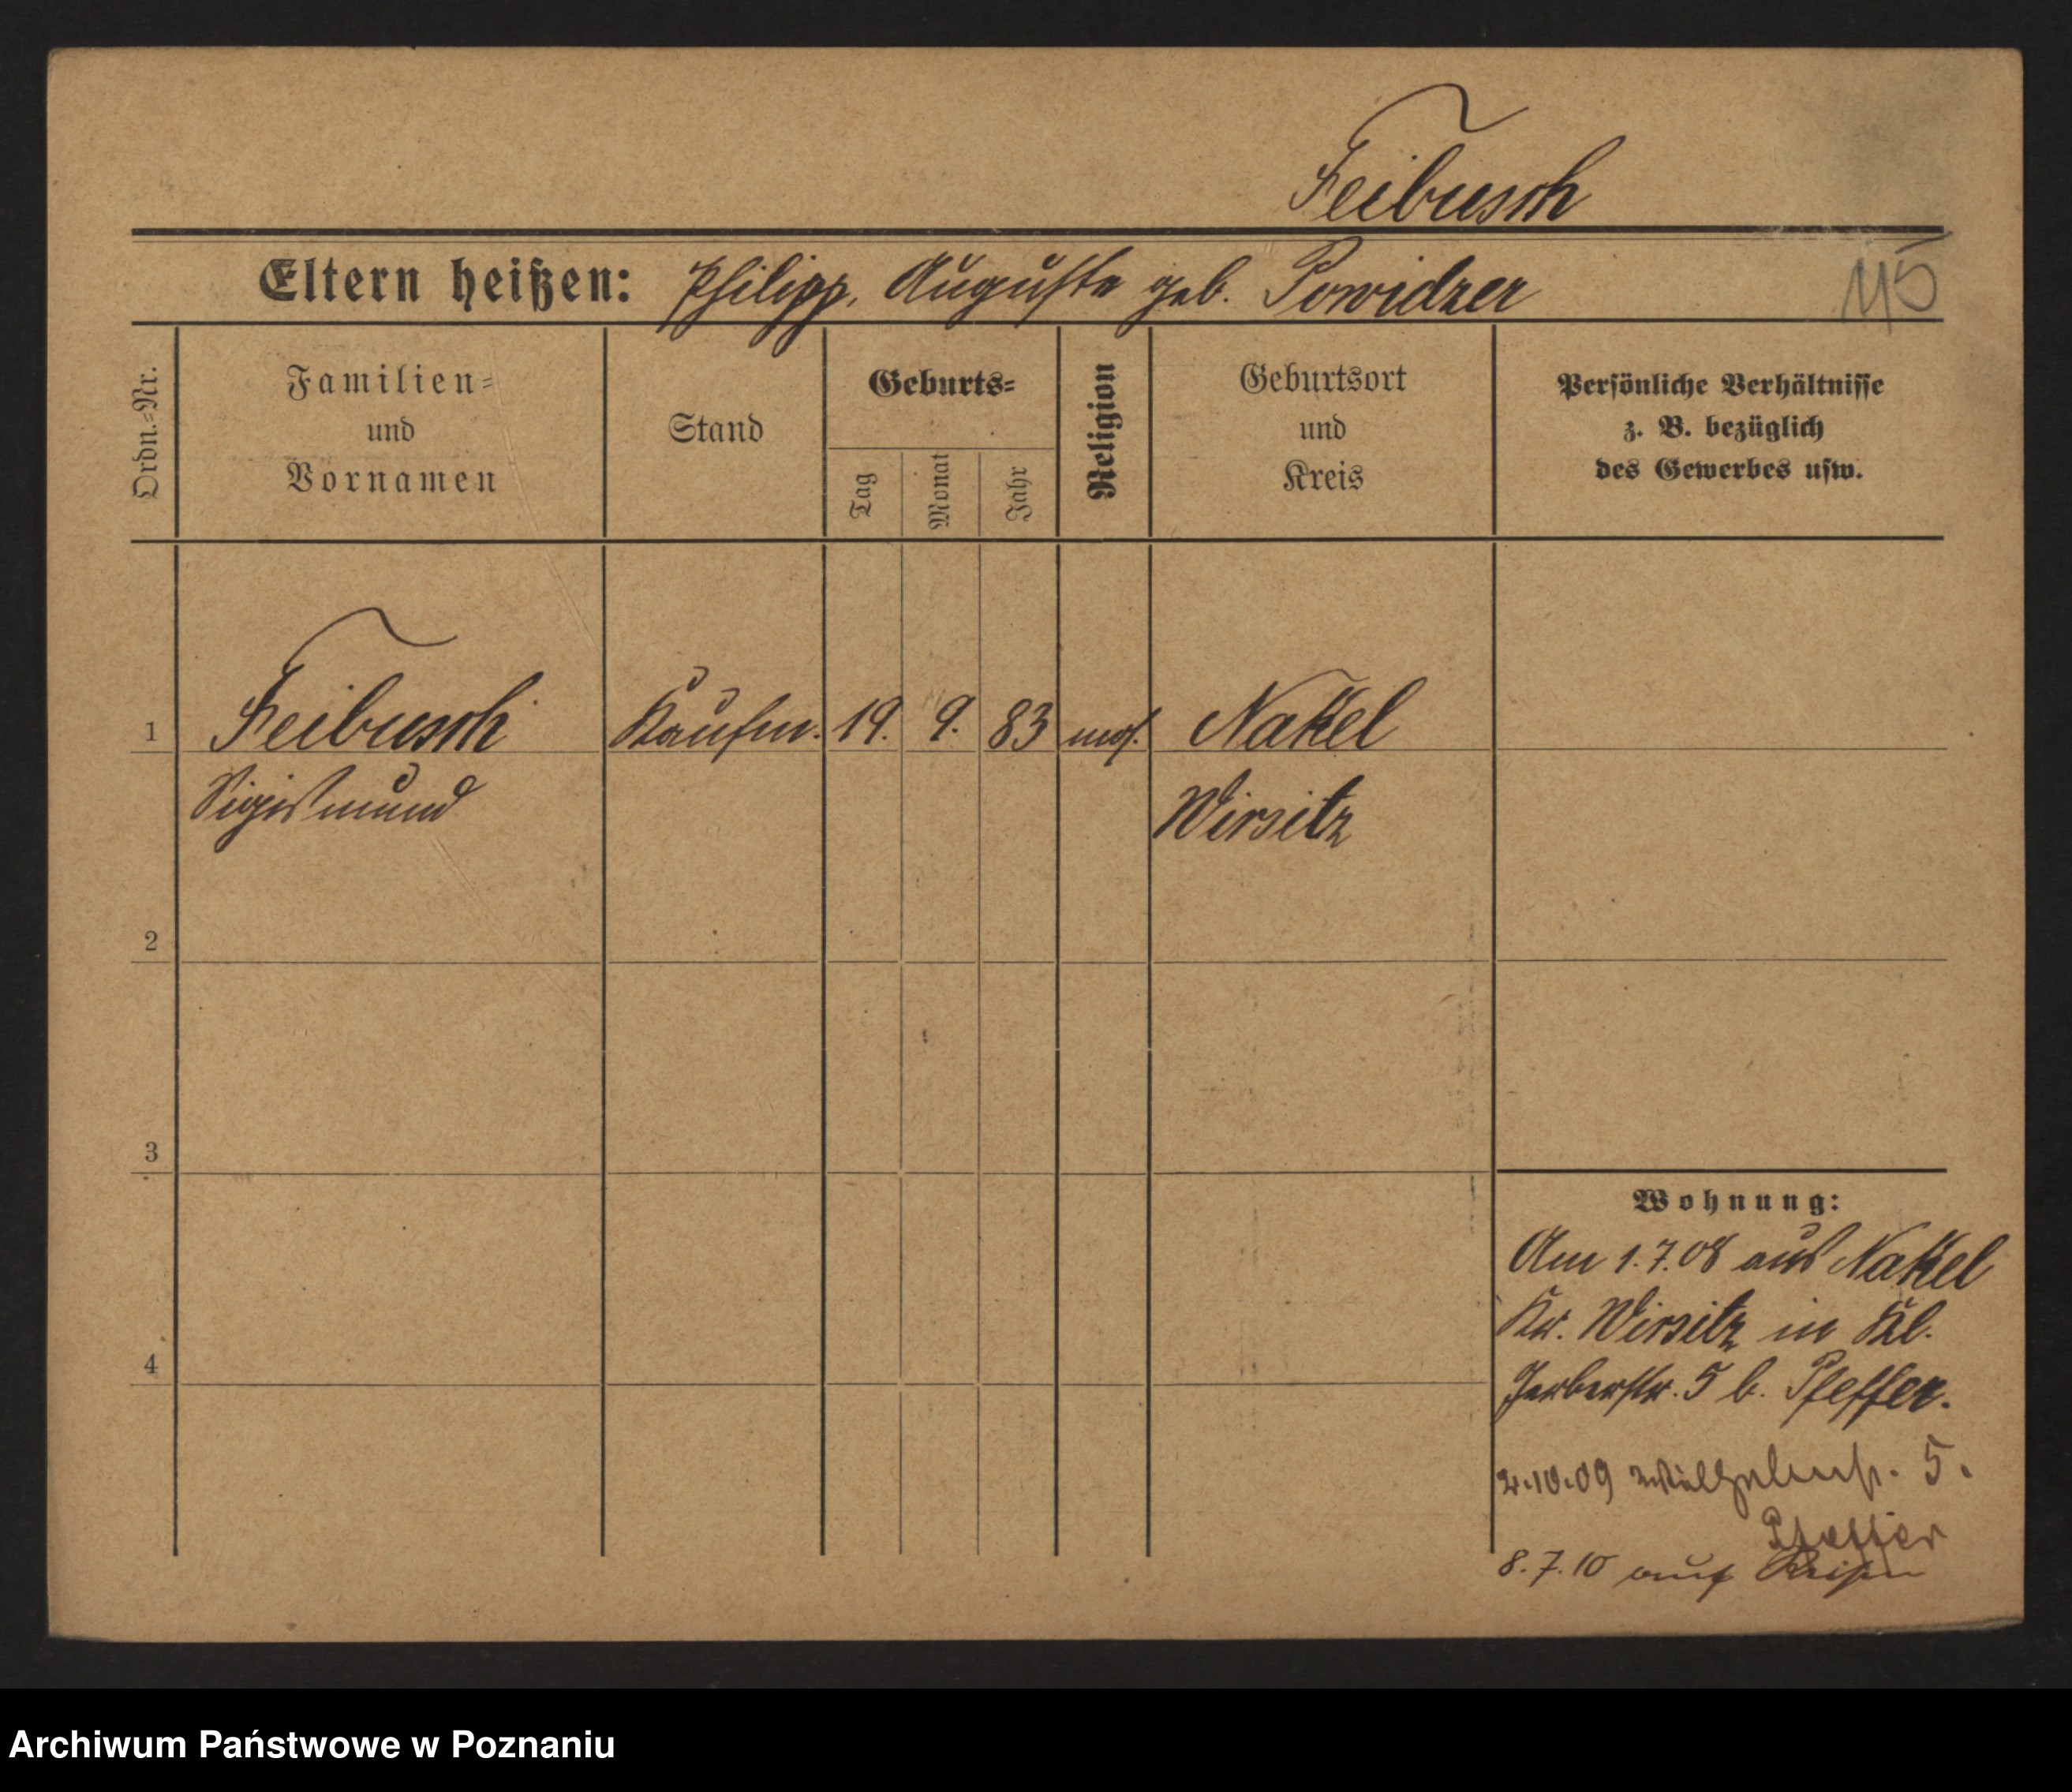 Feibusch
Eltern heißen: Philipp, Auguste geb. Powidzer
115
Ordn.=Nr.
Familien=
und
Vornamen
Stand
Geburts=
Tag
Monat
Jahr
Religion
Geburtsort
und
Kreis
Persönliche Verhältnisse
z. B. bezüglich
des Gewerbes usw.
1 Feibusch Kaufm. 19. 9. 83 mos. Nakel
Sigismund Wirsitz
2
3
4
Wohnung:
Am 1.7.08 aus Nakel
Kr. Wirsitz in Kl.
Gerberstr. 5 b. Pfeffer.
2.10.09 Wilhelmstr. 5.
Pfeffer
8.7.10 auf Reisen
Archiwum Państwowe w Poznaniu